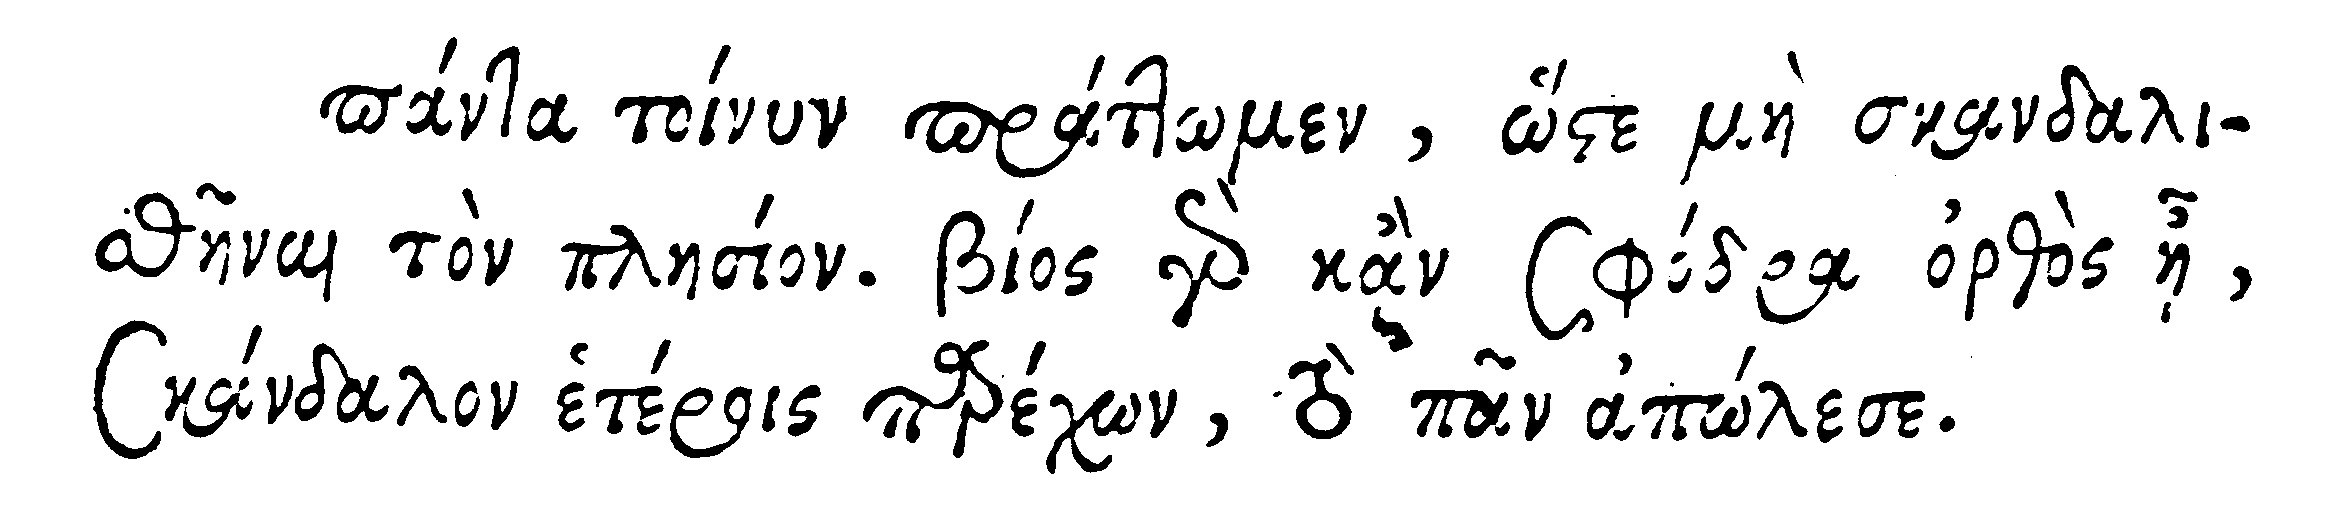 πάντα τοίνυν πράττωμεν, ὥστε μὴ σκανδαλι-
θῆναι τὸν πλησίον. βίος γὰρ κἂν σφόδρα ὀρθὸς ᾖ,
σκάνδαλον ἑτέροις παρέχων, τὸ πᾶν ἀπώλεσε.